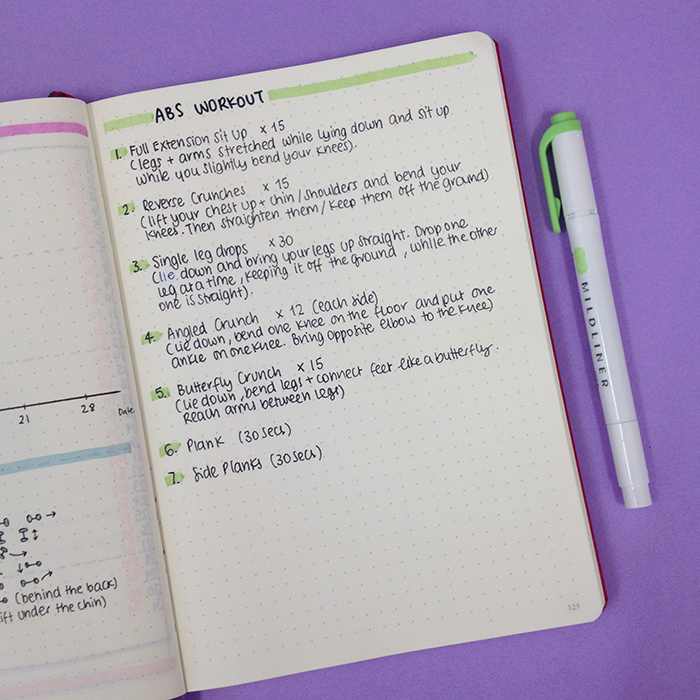 ABS WORKOUT
1. Full Extension sit up x 15
(legs + arms stretched while lying down and sit up
while you slightly bend your knees).
2. Reverse Crunches x 15
(lift your chest up + chin / shoulders and bend your
knees. Then straighten them / keep them off the ground)
3. Single leg drops x 30
(lie down and bring your legs up straight. Drop one
leg at a time, keeping it off the ground, while the other
one is straight).
4. Angled Crunch x 12 (each side)
(lie down, bend one knee on the floor and put one
ankle on one knee. Bring opposite elbow to the knee)
5. Butterfly Crunch x 15
(lie down, bend legs + connect feet like a butterfly.
Reach arms between legs)
6. Plank (30 secs)
7. Side Planks (30 secs)
129
21 28 Date
(behind the back)
ift under the chin)
MILDLINER